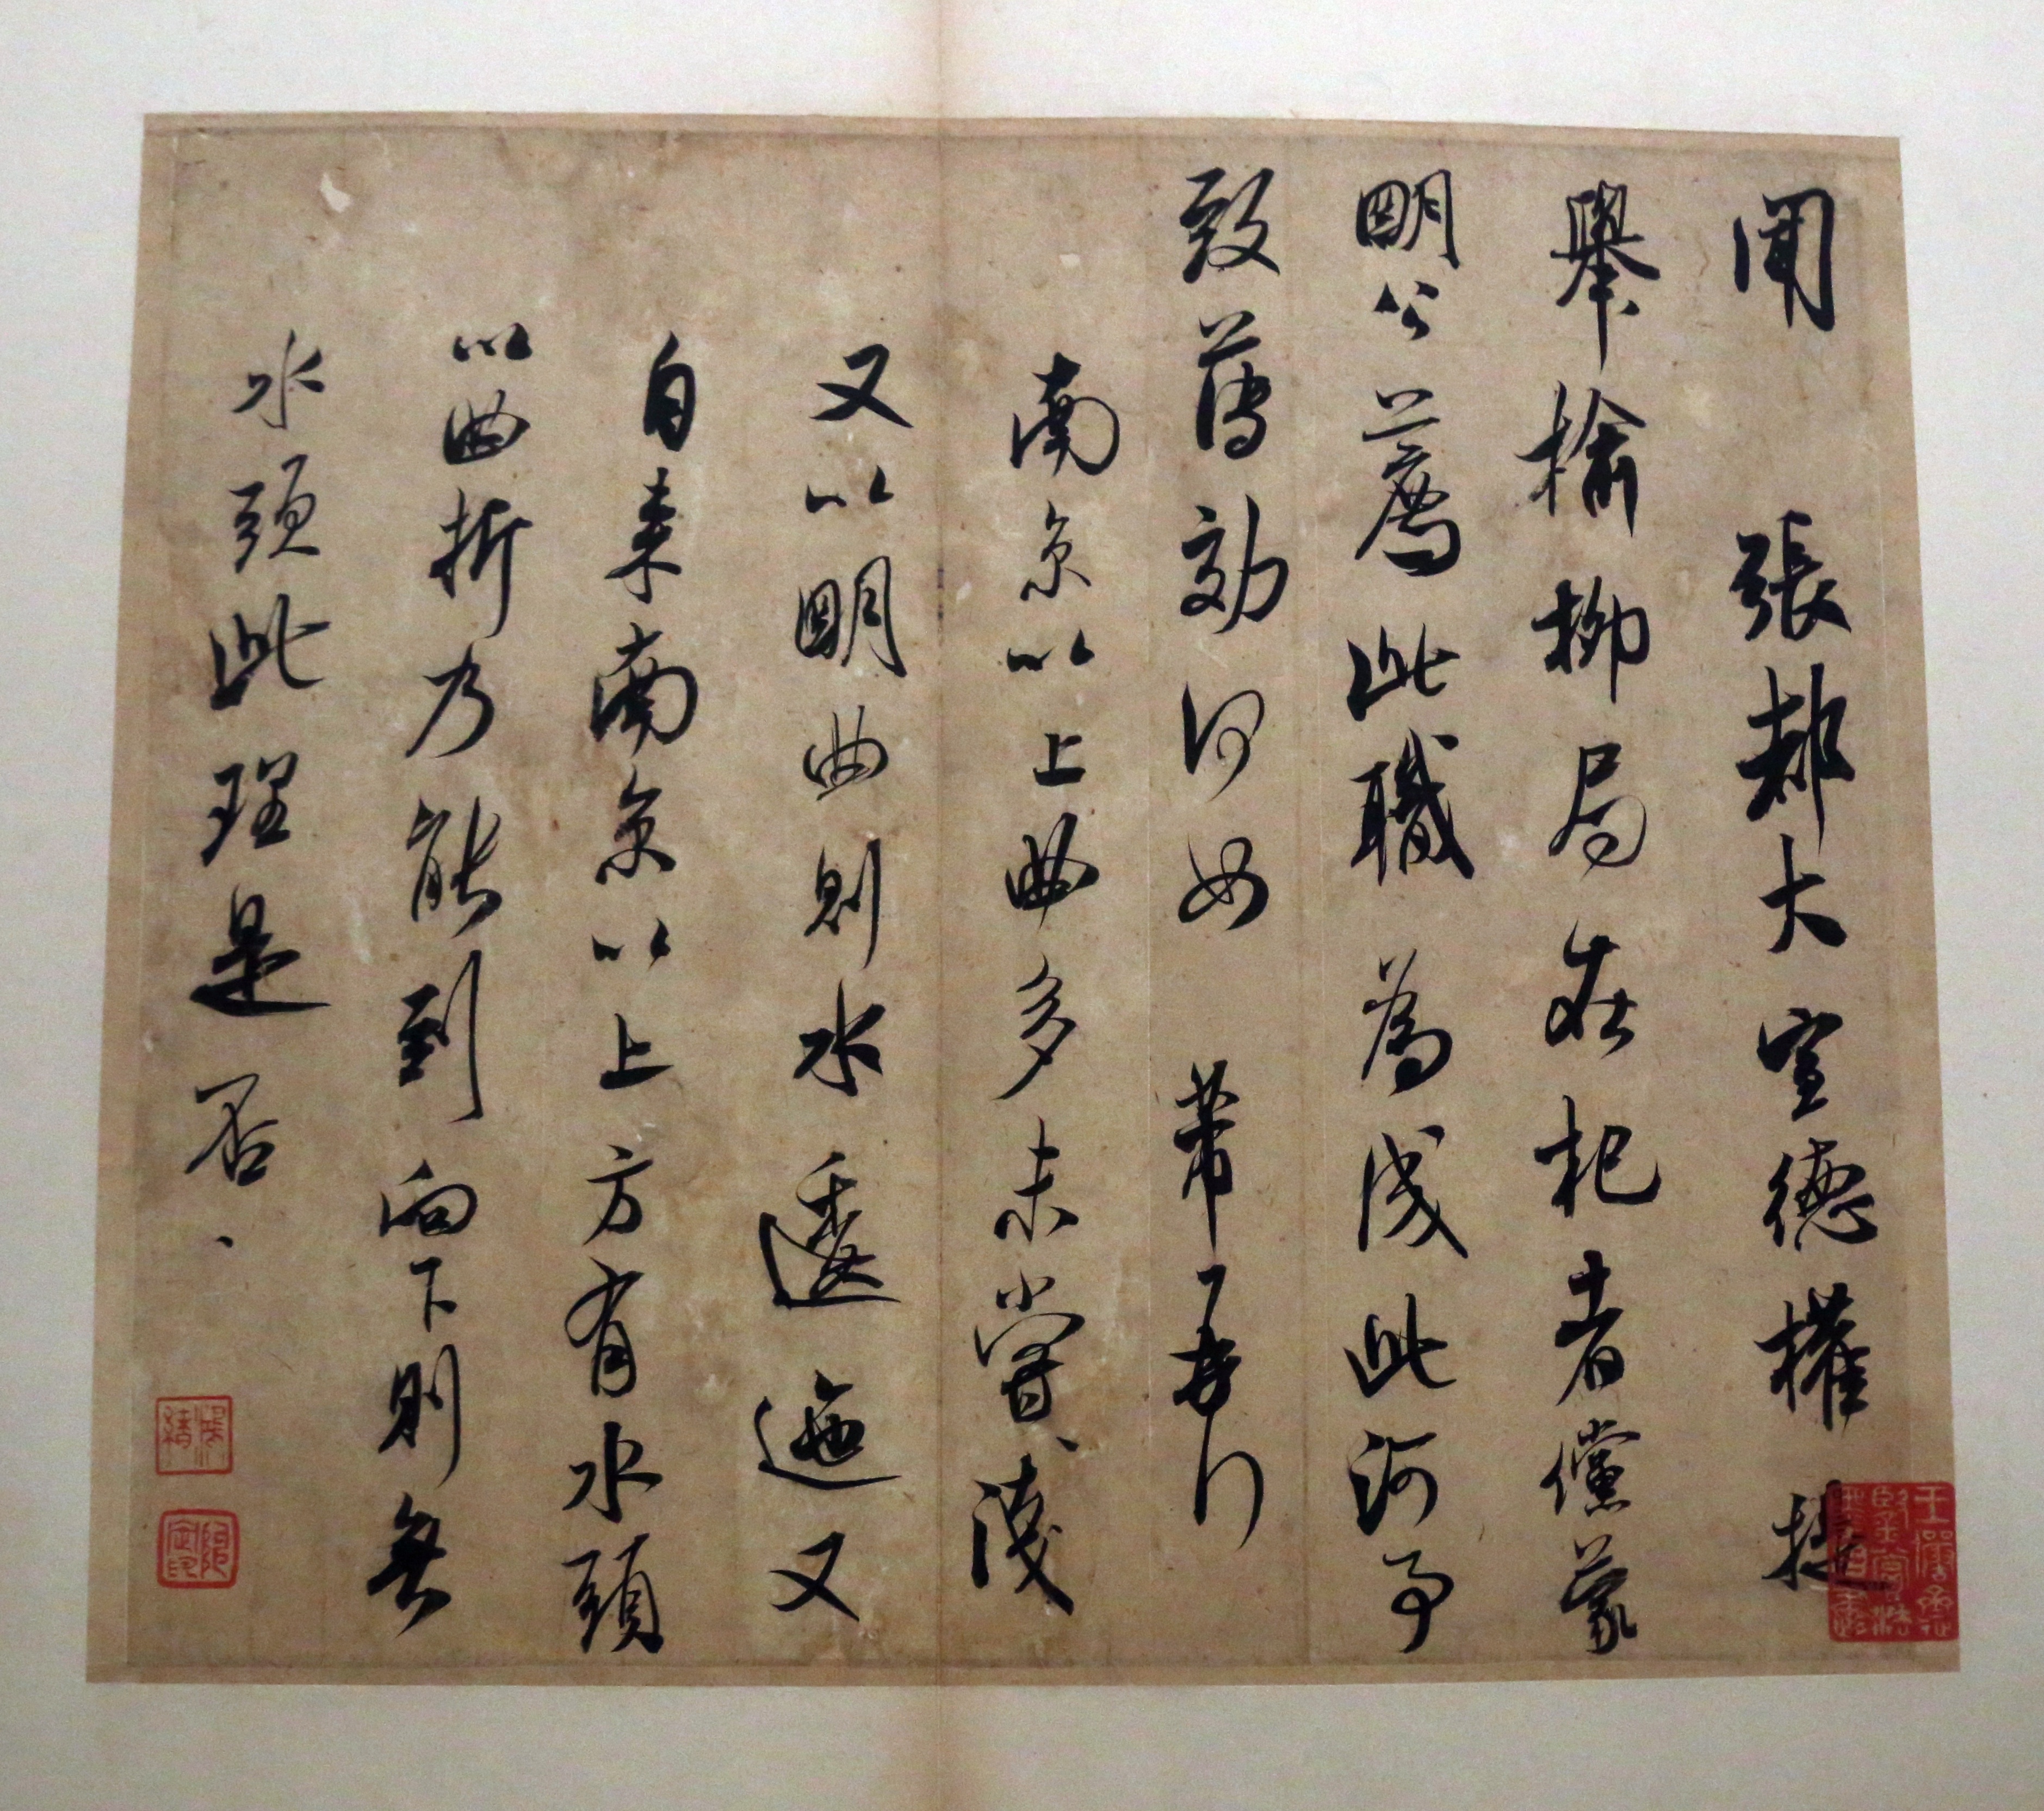 聞 張都大宣德權提
舉榆柳局在杞者儻蒙
明公薦此職為成此河事
致薄効何如 芾再行
南京以上曲多未嘗淺
又以明曲則水逶迤又
自来南京以上方有水頭
以曲折乃能到向下則無
水頭此理是否